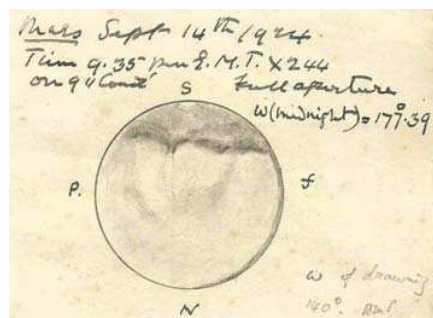 Mars Sept 14th/1924.
Time 9.35 pm G.M.T. X244
on 9" Cooke Full aperture
S
ω(midnight)=177°.39
P. f
N
ω of drawing
140°.